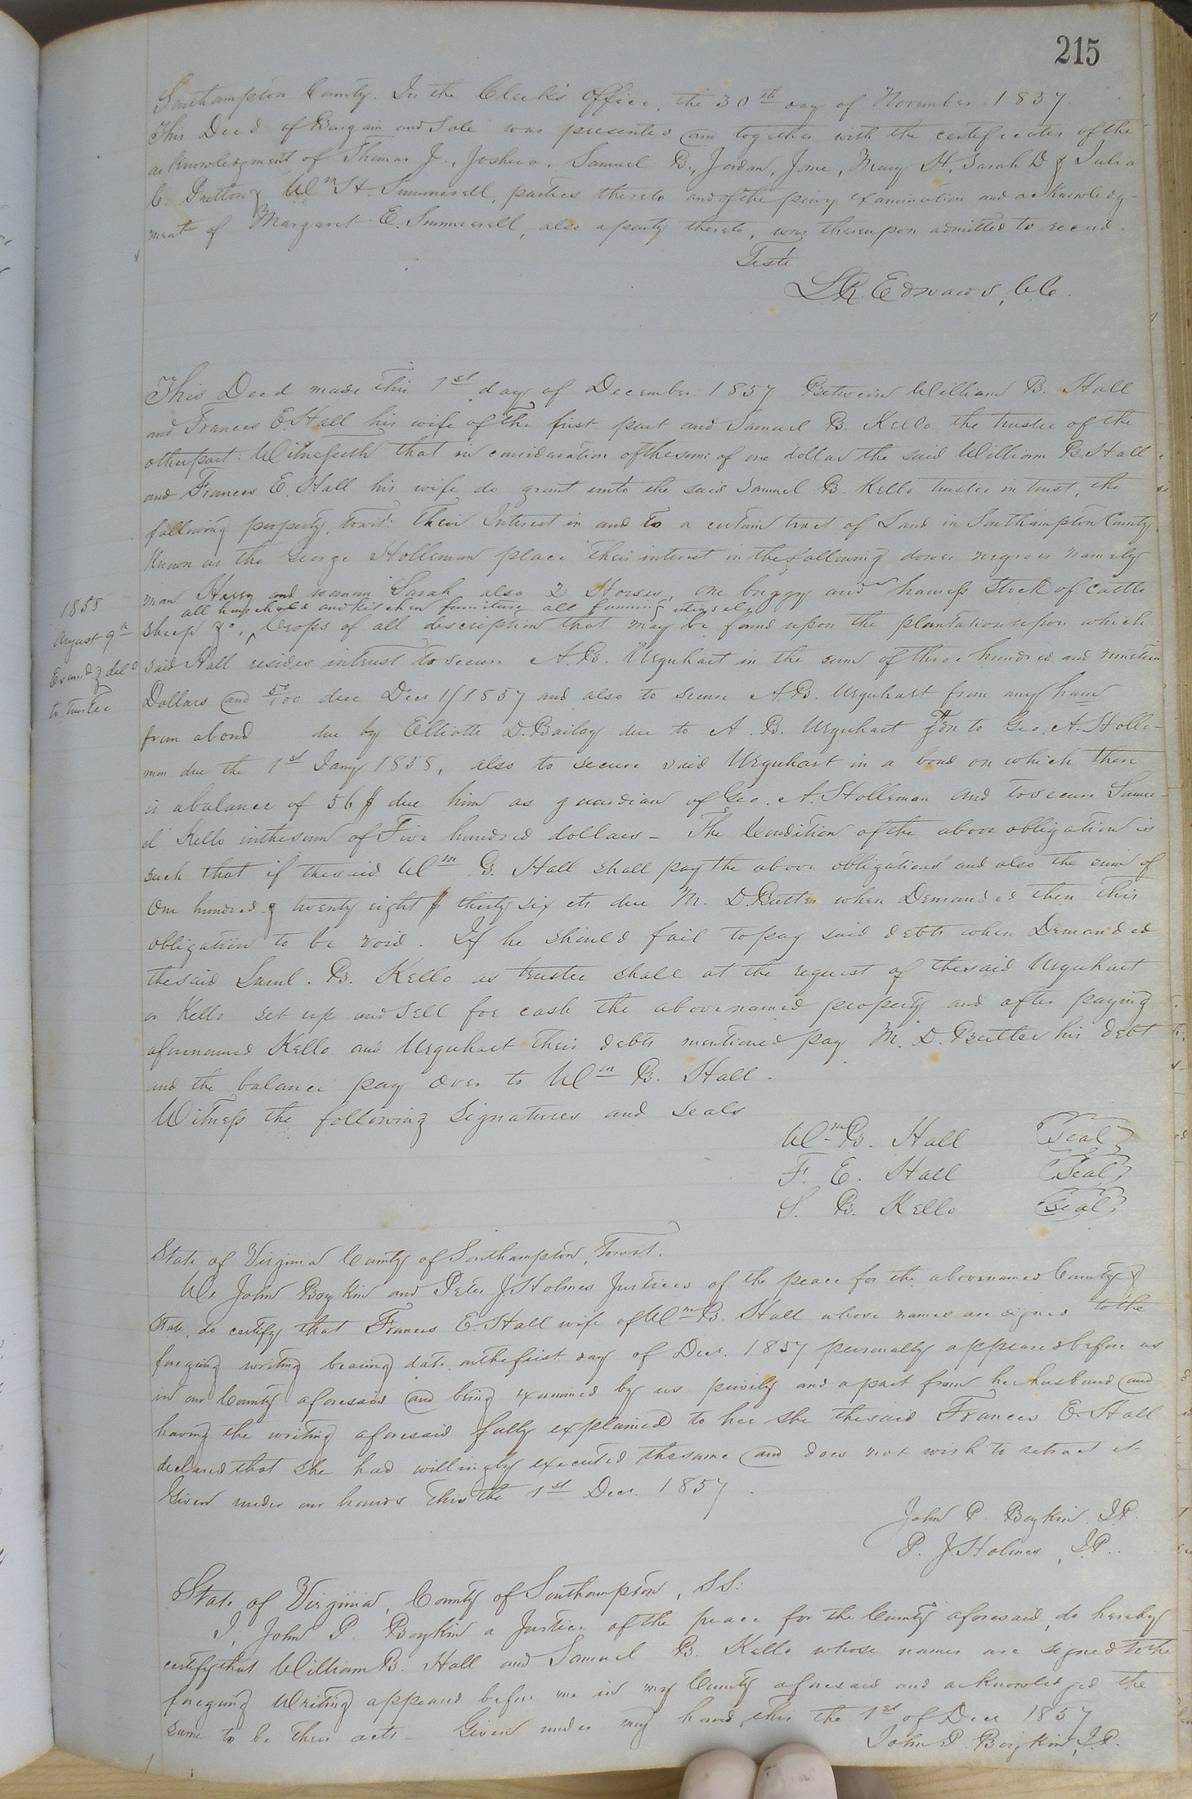 215
Southampton County. In the Clerk's Office, the 30th day of November 1857.
This Deed of Bargain and Sale was presented and together with the certificates of the
acknowledgment of Thomas J., Joshua, Samuel B., Jordan, Jane, Mary H, Sarah D & Julia
C. & Wm H Summerell, parties thereto and of the privy examination and acknowledg-
ment of Margaret E. Summerell, also a party thereto, was thereupon admitted to record.
Teste
L R. Edwards, C.C.
This Deed made this 1st day of December 1857 Between William B. Hall
and Frances E. Hall his wife of the first part and Samuel B. Kello the trustee of the
other part. Witnesseth that in consideration of the sum of one dollar the said William B Hall
and Frances E. Hall his wife do grant unto the said Samuel B. Kello trustee in trust, the
following property, towit: Their Interest in and to a certain tract of Land in Southampton County
Known as the George Holleman place Their interest in the following dower negroes namely
man Harry and woman Sarah also 2 Horses, one buggy and harness Stock of cattle
all household and kitchen furniture all farming utensils
sheep &c. Crops of all description that may be found upon the plantation upon which
said Hall resides in trust to secure A. B. Urquhart in the sum of three hundred and nineteen
Dollars and /100 due Decr 1/1857 and also to secure A.B. Urquhart from any harm
from a bond due by Elliotte D. Bailey due to A. B. Urquhart Gdn to Geo. A. Holle-
man due the 1st Jany 1858, also to secure said Urquhart in a bond on which there
is a balance of 56 $ due him as guardian of Geo. A. Holleman and to secure Samu-
el Kello in the sum of Five hundred dollars - The Condition of the above obligation is
such that if the said Wm B. Hall shall pay the above obligations and also the sum of
One hundred & twenty eight $ thirty six cts due M. D. Butts when Demanded then this
obligation to be void. If he should fail to pay said debts when Demanded
the said Saml. B. Kello as trustee shall at the request of the said Urquhart
or Kello set up and sell for cash the above named property and after paying
aforenamed Kello and Urquhart their debts mentioned pay M. D. Butts his debt
and the balance pay over to Wm B. Hall.
Witness the following signatures and seals
Wm B. Hall Seal
F. E. Hall Seal
S. B. Kello Seal
1858
August 9th
Examd & deld
to trustee
State of Virginia County of Southampton, Towit.
We John Boykin and Peter J Holmes Justices of the peace for the above named County &
State, do certify that Frances E Hall wife of Wm B. Hall whose names are signed to the
foregoing writing bearing date on the first day of Decr. 1857 personally appeared before us
in our County aforesaid and being examined by us privily and apart from her husband and
having the writing aforesaid fully explained to her she the said Frances E. Hall
declared that she had willingly executed the same and does not wish to retract it.
Given under our hands this the 1st Decr. 1857.
John P. Boykin J.P.
P. J Holmes, J.P.
State of Virginia, County of Southampton, SS:
I, John P. Boykin a Justice of the peace for the County aforesaid, do hereby
certify that William B. Hall and Samuel B. Kello whose names are signed to the
foregoing Writing appeared before me in my County aforesaid and acknowledged the
same to be their acts. Given under my hand this the 1st of Decr 1857
John P. Boykin, J.P.